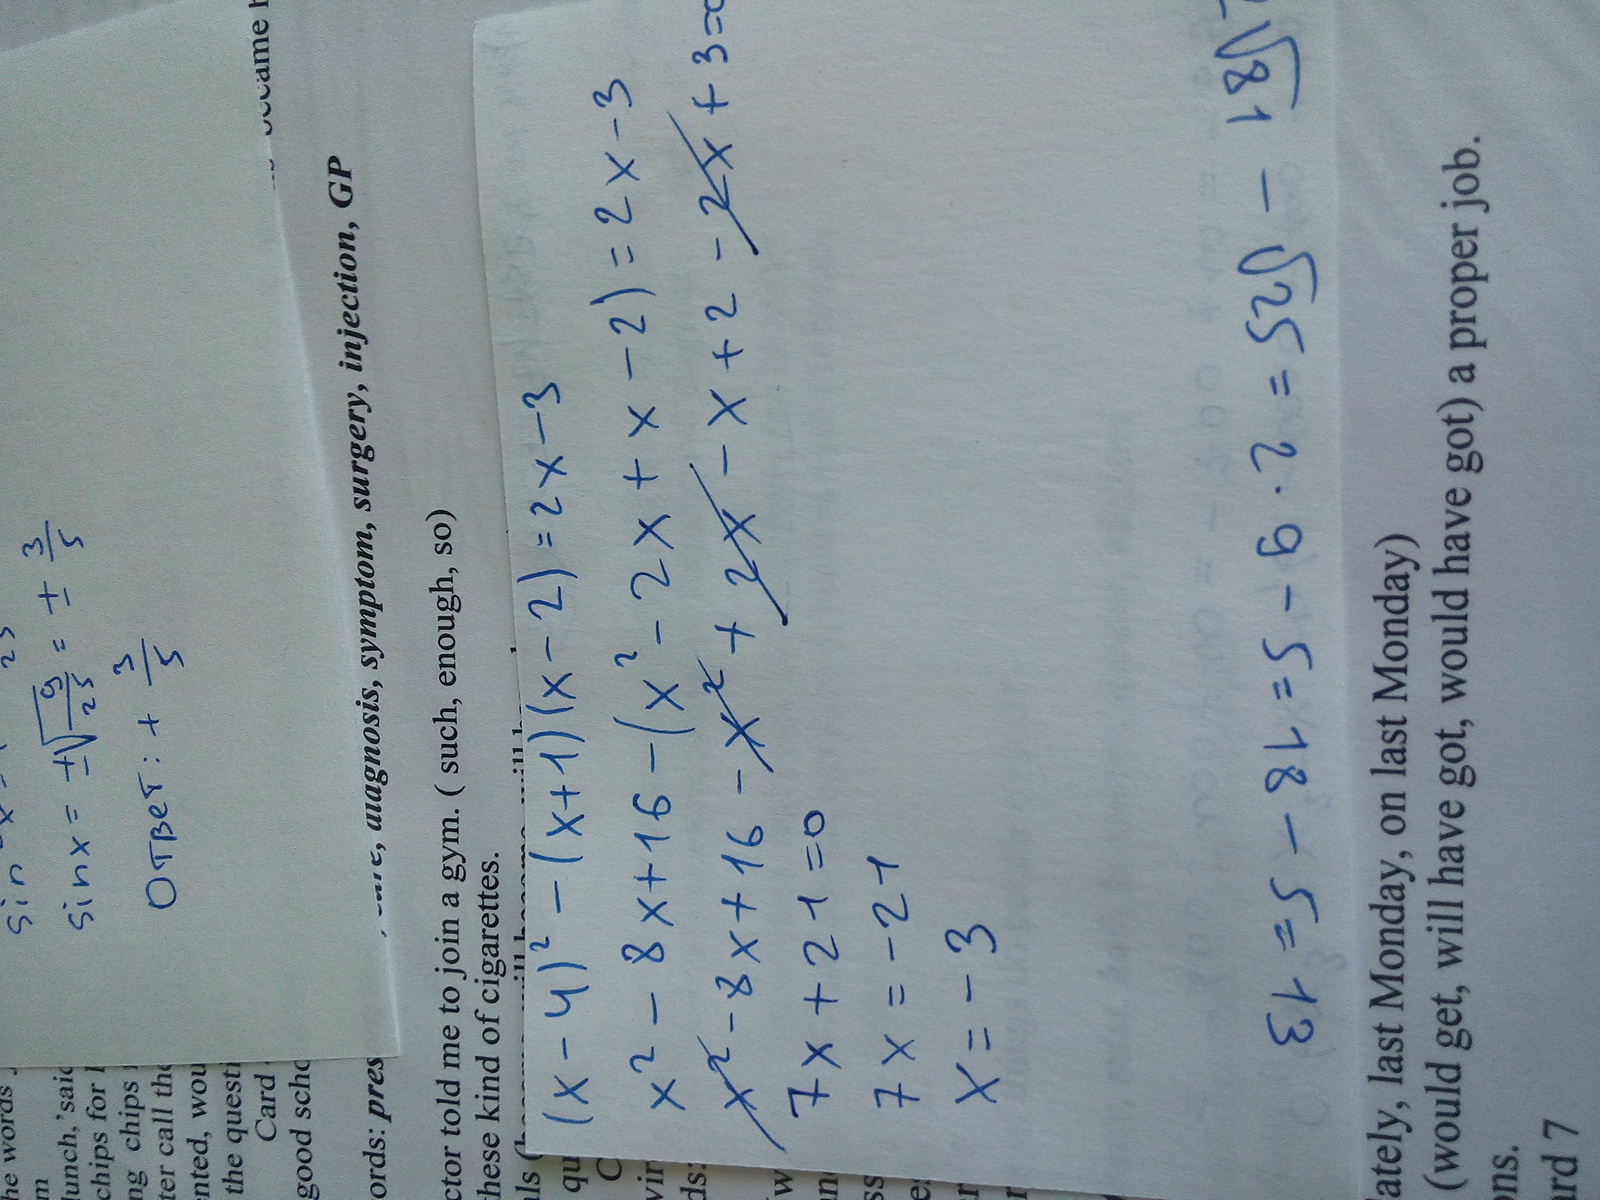 sin x = ±√9/25 = ± 3/5
Ответ: + 3/5
became
he words
m
lunch,'said
chips for
ng chips
ter call the
nted, wou
the questi
Card
good scho
ords: pres , diagnosis, symptom, surgery, injection, GP
ctor told me to join a gym. ( such, enough, so)
hese kind of cigarettes.
(x-4)² - (x+1)(x-2) = 2x-3
x² - 8x+16 - (x² - 2x + x - 2) = 2x-3
x² - 8x+16 - x² + 2x - x + 2 - 2x + 3 =0
7x + 21 = 0
7x = -21
x = -3
√81 - √25 = 2 · 9 - 5 = 18 - 5 = 13
ately, last Monday, on last Monday)
(would get, will have got, would have got) a proper job.
ons.
rd 7